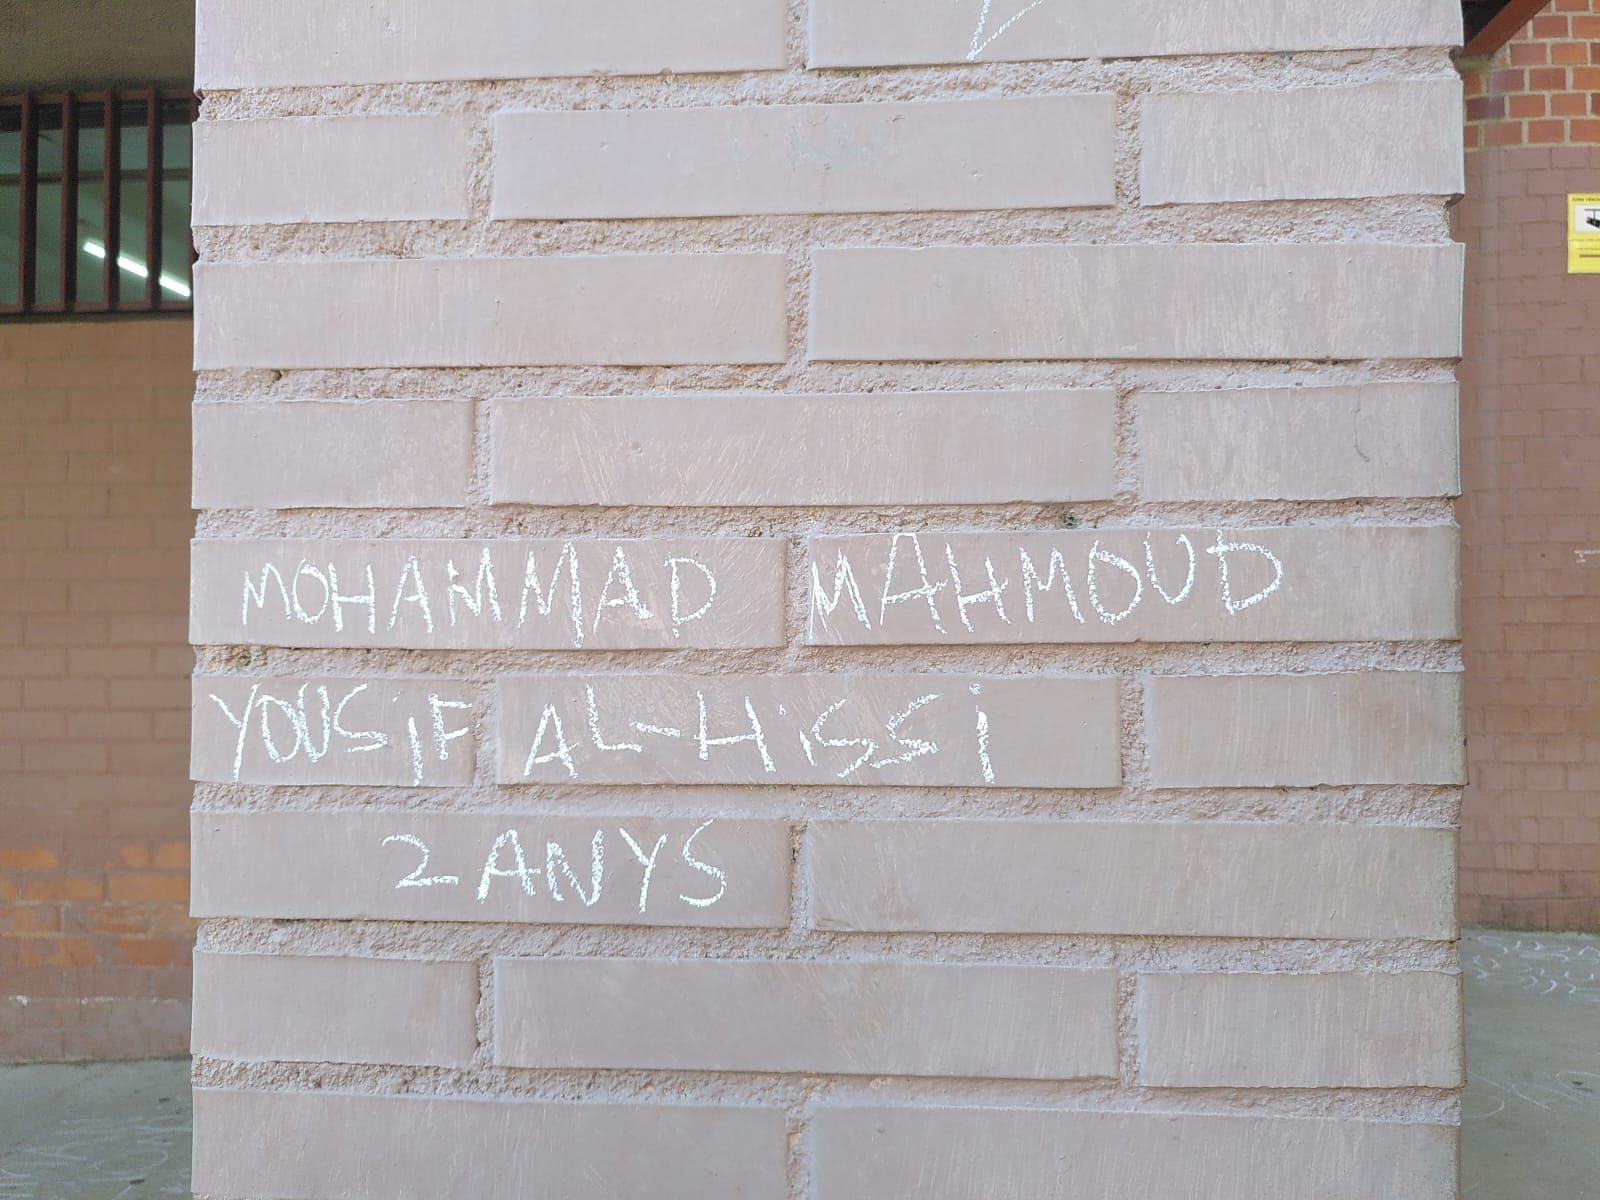 MOHAMMAD MAHMOUD
YOUSiF AL-HiSSi
2 ANYS